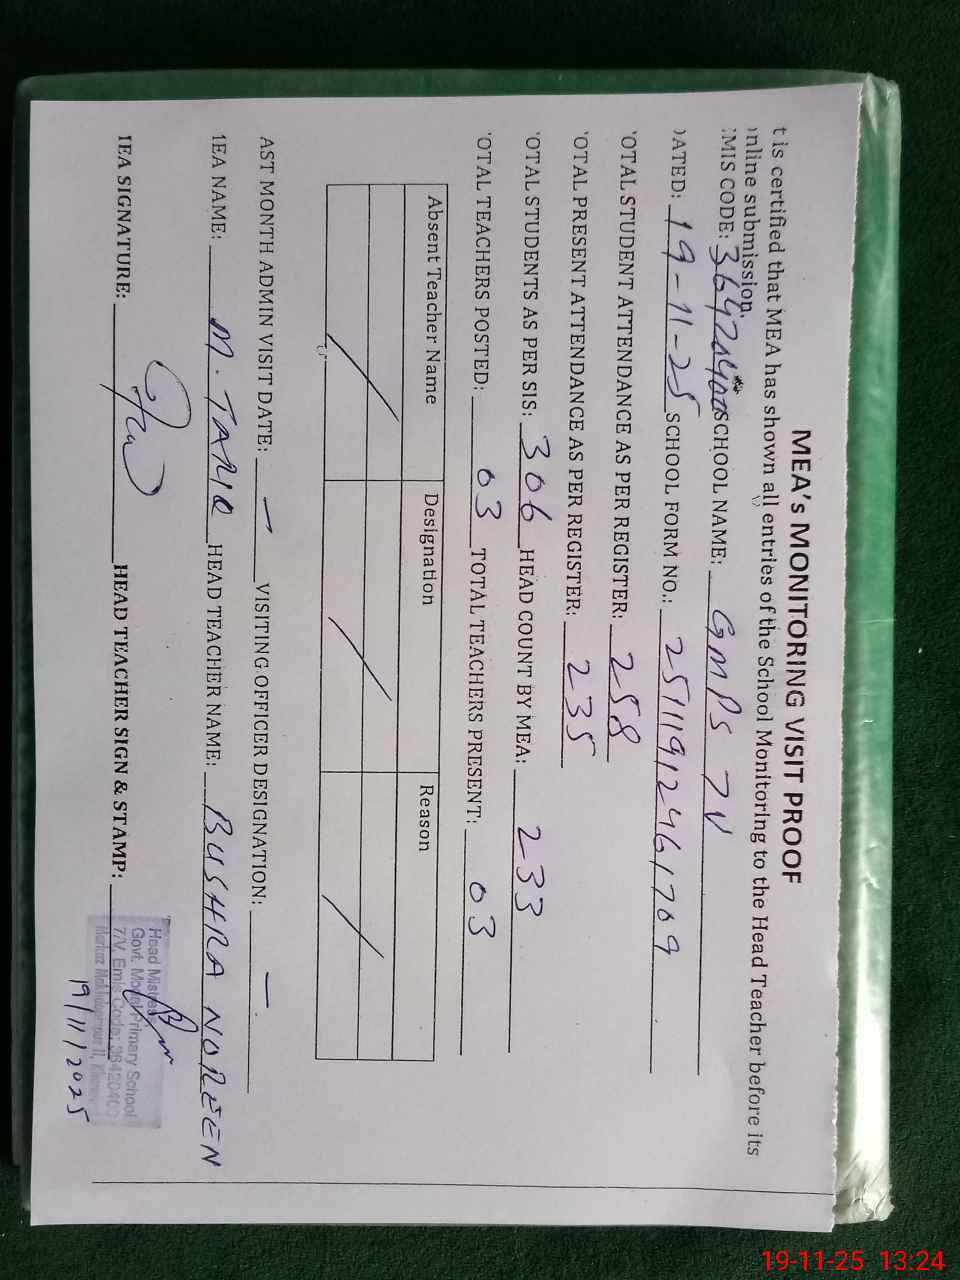 MEA's MONITORING VISIT PROOF
t is certified that MEA has shown all entries of the School Monitoring to the Head Teacher before its
nline submission.
MIS CODE: SCHOOL NAME: GMPS 7V
ATED: 19-11-25 SCHOOL FORM NO.: 25111912461709
OTAL STUDENT ATTENDANCE AS PER REGISTER: 258
OTAL PRESENT ATTENDANCE AS PER REGISTER: 235
OTAL STUDENTS AS PER SIS: 306 HEAD COUNT BY MEA: 233
OTAL TEACHERS POSTED: 03 TOTAL TEACHERS PRESENT: 03
Absent Teacher Name Designation Reason
AST MONTH ADMIN VISIT DATE: — VISITING OFFICER DESIGNATION: —
MEA NAME: M. TARIQ HEAD TEACHER NAME: BUSHRA NOREEN
MEA SIGNATURE: HEAD TEACHER SIGN & STAMP:
Head Mistress
Govt. Model Primary School
7/V, Emis Code:
19/11/2025
19-11-25 13:24